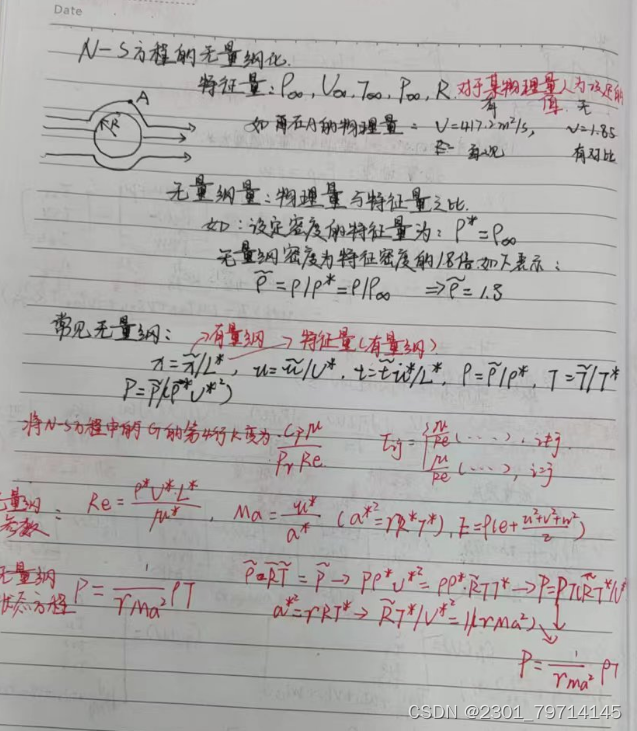 Date
N-S方程的无量纲化.
特征量:ρ∞, U∞, T∞, P∞, R. 对于某物理量人为设定的值.
A
R
有 无
如再在A的物理量: V=417.2m²/s, v=1.85
直观 有对比
无量纲量:物理量与特征量之比.
如:设定密度的特征量为:ρ*=ρ∞
无量纲密度为特征密度的1.8倍如下表示:
ρ̃=ρ/ρ*=ρ/ρ∞ ⇒ρ̃=1.8
常见无量纲: →有量纲 →特征量(有量纲)
x=x̃/L*, u=ũ/U*, t=t̃u*/L*, ρ=ρ̃/ρ*, T=T̃/T*
P=P̃/(ρ*U*²)
将N-S方程中的G的第4行k变为:Cpμ/PrRe
τij={μ/Re(……), i≠j
μ/Re(……), i=j
无量纲参数: Re=ρ*U*L*/μ*, Ma=u*/a* (a*²=rR*T*), E=ρ(e+(u²+v²+w²)/2)
无量纲状态方程 P=1/(rMa²) ρT
ρ̃R̃T̃=P̃→Pρ*U*²=ρρ*·R̃TT*→P=ρT(R̃T*/U*²
a*²=rRT*→R̃T*/U*²=1/(rMa²)
P=1/(rMa²) ρT
CSDN @2301_79714145